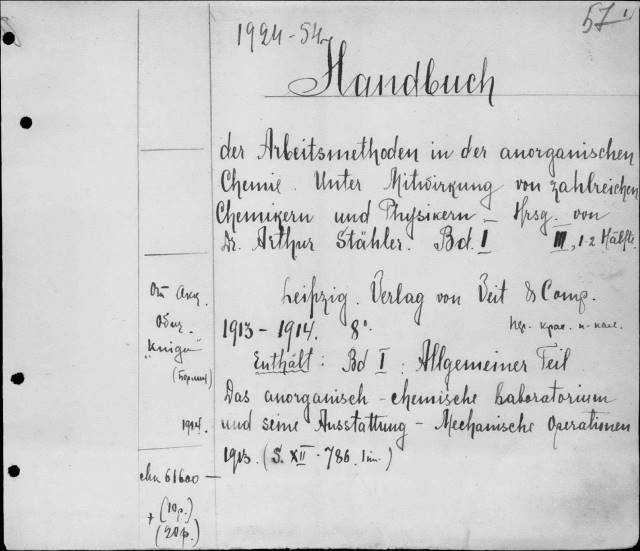 57
1924-54
Handbuch
der Arbeitsmethoden in der anorganischen
Chemie. Unter Mitwirkung von zahlreichen
Chemikern und Physikern – Hrsg. von
Dr. Arthur Stähler. Bd. I III, 1-2 Hälfte.
Leipzig. Verlag von Veit & Comp.
1913-1914. 8°.
Enthält: Bd I: Allgemeiner Teil
Das anorganisch-chemische Laboratorium
und seine Ausstattung – Mechanische Operationen
1913. (S. XII. 786.
От Акц.
Общ.
"Книга"
(Берлин)
1924.
61600 –
+ (10р.)
(20р.)